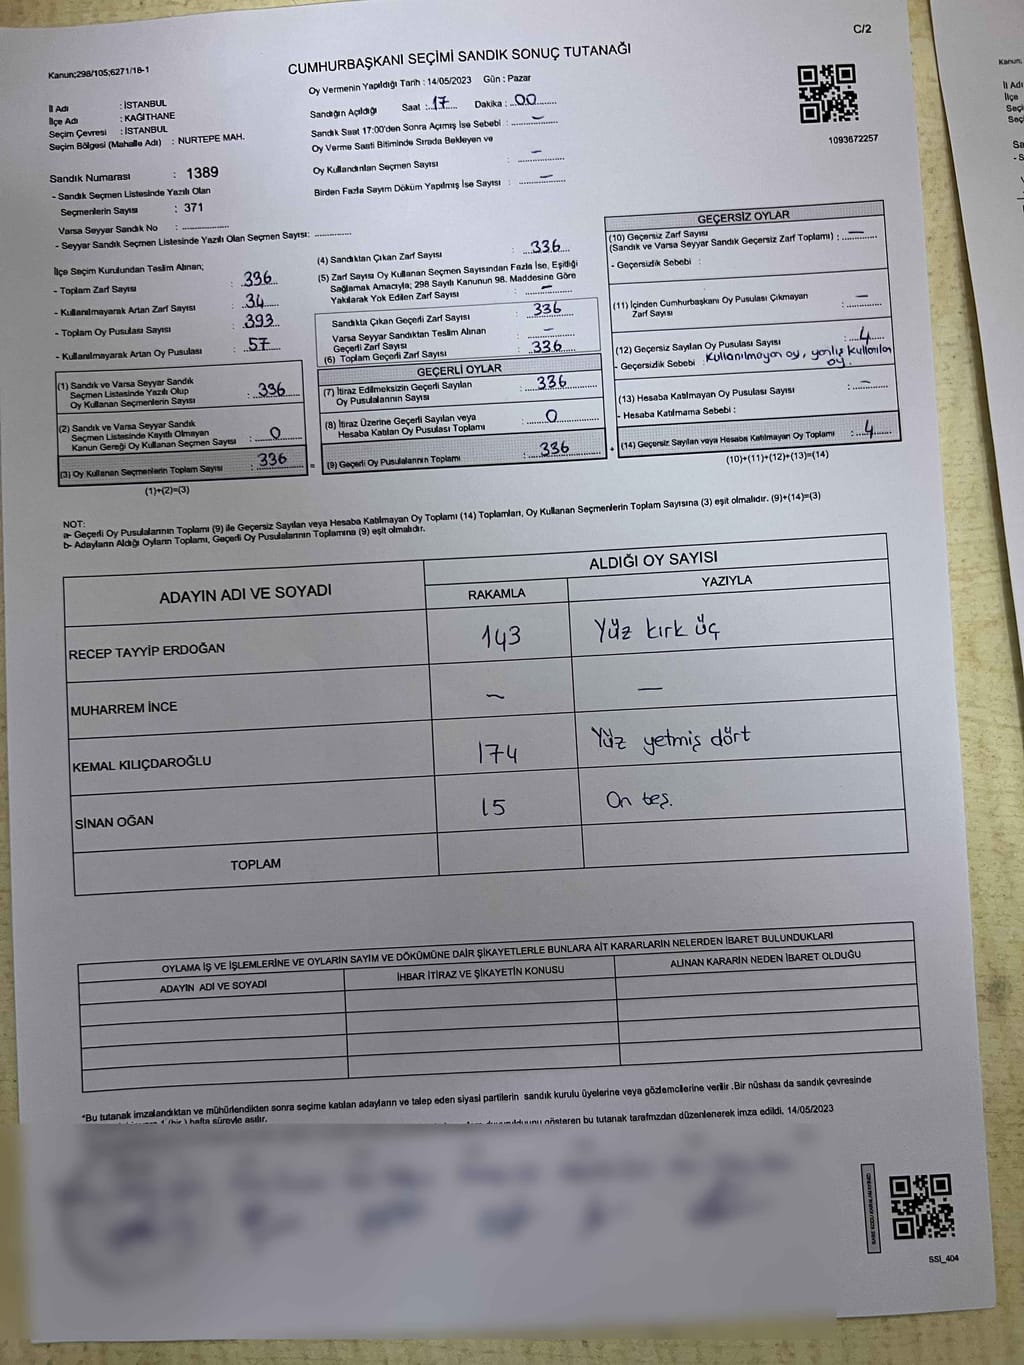 C/2
Kanun;298/105;6271/18-1
CUMHURBAŞKANI SEÇİMİ SANDIK SONUÇ TUTANAĞI
Oy Vermenin Yapıldığı Tarih : 14/05/2023 Gün : Pazar
İl Adı : İSTANBUL
İlçe Adı : KAĞITHANE
Seçim Çevresi : İSTANBUL
Seçim Bölgesi (Mahalle Adı) : NURTEPE MAH.
Sandığın Açıldığı Saat : 17 Dakika : 00
Sandık Saat 17:00'den Sonra Açımış İse Sebebi : —
Oy Verme Saati Bitiminde Sırada Bekleyen ve
Oy Kullandırılan Seçmen Sayısı : —
Birden Fazla Sayım Döküm Yapılmış İse Sayısı : —
1093672257
Sandık Numarası : 1389
- Sandık Seçmen Listesinde Yazılı Olan
Seçmenlerin Sayısı : 371
Varsa Seyyar Sandık No :
- Seyyar Sandık Seçmen Listesinde Yazılı Olan Seçmen Sayısı:
İlçe Seçim Kurulundan Teslim Alınan;
- Toplam Zarf Sayısı : 396
- Kullanılmayarak Artan Zarf Sayısı : 34
- Toplam Oy Pusulası Sayısı : 393
- Kullanılmayarak Artan Oy Pusulası : 57
(1) Sandık ve Varsa Seyyar Sandık
Seçmen Listesinde Yazılı Olup
Oy Kullanan Seçmenlerin Sayısı : 336
(2) Sandık ve Varsa Seyyar Sandık
Seçmen Listesinde Kayıtlı Olmayan
Kanun Gereği Oy Kullanan Seçmen Sayısı : 0
(3) Oy Kullanan Seçmenlerin Toplam Sayısı : 336
(1)+(2)=(3)
(4) Sandıktan Çıkan Zarf Sayısı : 336
(5) Zarf Sayısı Oy Kullanan Seçmen Sayısından Fazla İse, Eşitliği
Sağlamak Amacıyla; 298 Sayılı Kanunun 98. Maddesine Göre
Yakılarak Yok Edilen Zarf Sayısı : —
Sandıkta Çıkan Geçerli Zarf Sayısı : 336
Varsa Seyyar Sandıktan Teslim Alınan
Geçerli Zarf Sayısı : —
(6) Toplam Geçerli Zarf Sayısı : 336
GEÇERLİ OYLAR
(7) İtiraz Edilmeksizin Geçerli Sayılan
Oy Pusulalarının Sayısı : 336
(8) İtiraz Üzerine Geçerli Sayılan veya
Hesaba Katılan Oy Pusulası Toplamı : 0
= (9) Geçerli Oy Pusulalarının Toplamı : 336
GEÇERSİZ OYLAR
(10) Geçersiz Zarf Sayısı
(Sandık ve Varsa Seyyar Sandık Geçersiz Zarf Toplamı) : —
- Geçersizlik Sebebi :
(11) İçinden Cumhurbaşkanı Oy Pusulası Çıkmayan
Zarf Sayısı : —
(12) Geçersiz Sayılan Oy Pusulası Sayısı : 4
- Geçersizlik Sebebi : Kullanılmayan oy, yanlış kullanılan
oy.
(13) Hesaba Katılmayan Oy Pusulası Sayısı : —
- Hesaba Katılmama Sebebi :
+ (14) Geçersiz Sayılan veya Hesaba Katılmayan Oy Toplamı : 4
(10)+(11)+(12)+(13)=(14)
NOT:
a- Geçerli Oy Pusulalarının Toplamı (9) ile Geçersiz Sayılan veya Hesaba Katılmayan Oy Toplamı (14) Toplamları, Oy Kullanan Seçmenlerin Toplam Sayısına (3) eşit olmalıdır. (9)+(14)=(3)
b- Adayların Aldığı Oyların Toplamı, Geçerli Oy Pusulalarının Toplamına (9) eşit olmalıdır.
ADAYIN ADI VE SOYADI
ALDIĞI OY SAYISI
RAKAMLA YAZIYLA
RECEP TAYYİP ERDOĞAN 143 Yüz kırk üç
MUHARREM İNCE — —
KEMAL KILIÇDAROĞLU 174 Yüz yetmiş dört
SİNAN OĞAN 15 On beş.
TOPLAM
OYLAMA İŞ VE İŞLEMLERİNE VE OYLARIN SAYIM VE DÖKÜMÜNE DAİR ŞİKAYETLERLE BUNLARA AİT KARARLARIN NELERDEN İBARET BULUNDUKLARI
ADAYIN ADI VE SOYADI İHBAR İTİRAZ VE ŞİKAYETİN KONUSU ALINAN KARARIN NEDEN İBARET OLDUĞU
*Bu tutanak imzalandıktan ve mühürlendikten sonra seçime katılan adayların ve talep eden siyasi partilerin sandık kurulu üyelerine veya gözlemcilerine verilir .Bir nüshası da sandık çevresinde
1 (bir ) hafta süreyle asılır.
gösteren bu tutanak tarafımızdan düzenlenerek imza edildi. 14/05/2023
SSI_404
Kanun;
İl Adı
İlçe
Seçi
Seç